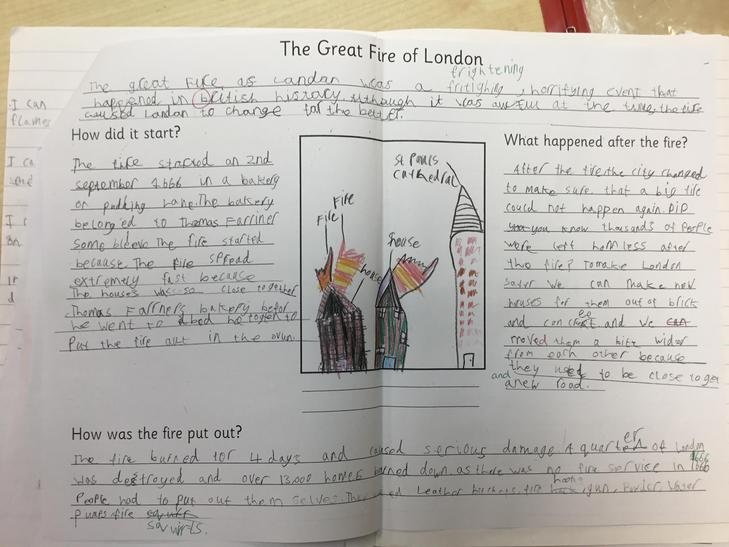 The Great Fire of London
frightening
The great Fire of Landan was a fritighing, horrifying event that
happened in british history. Although it was awful at the time, the fire
caused Landan to change for the better.
I can
flames
How did it start?
The fire started on 2nd
september 1666 in a bakery
on pudding Lane. The bakery
belonged to Thomas Farriner
Some bleeve The fire started
because The fire spread
extremely fast because
The houses was so close together
Thomas Farrners bakery befor
he went to bed he
Put the fire out in the ovun.
St Pauls
Cathedral
Fire
Fire
house
house
What happened after the fire?
After the fire the city changed
to make sure that a big fire
could not happen again. Did
you know thousands of people
were left homless after
the fire? To make London
safer we can make new
houses for them out of brick
and concreet and we can
moved them a bite wider
from each other because
they used to be close toger
and anew road.
How was the fire put out?
The fire burned for 4 days and caused serious damage A quarter of London
was destroyed and over 13,000 homes burned down as there was no fire service in 1666
People had to put out them selves. They used Leather buckets, fire hooks, gun Powder, Water
pumps fire squirts.